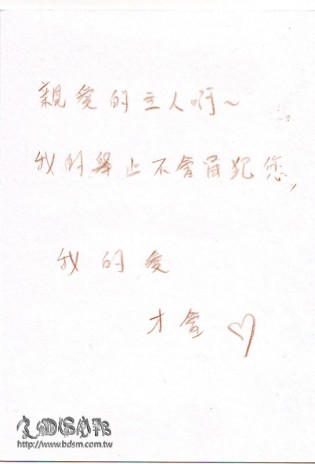 親愛的主人啊～
我的舉止不會冒犯您，
我的愛
才會♡
http://www.bdsm.com.tw